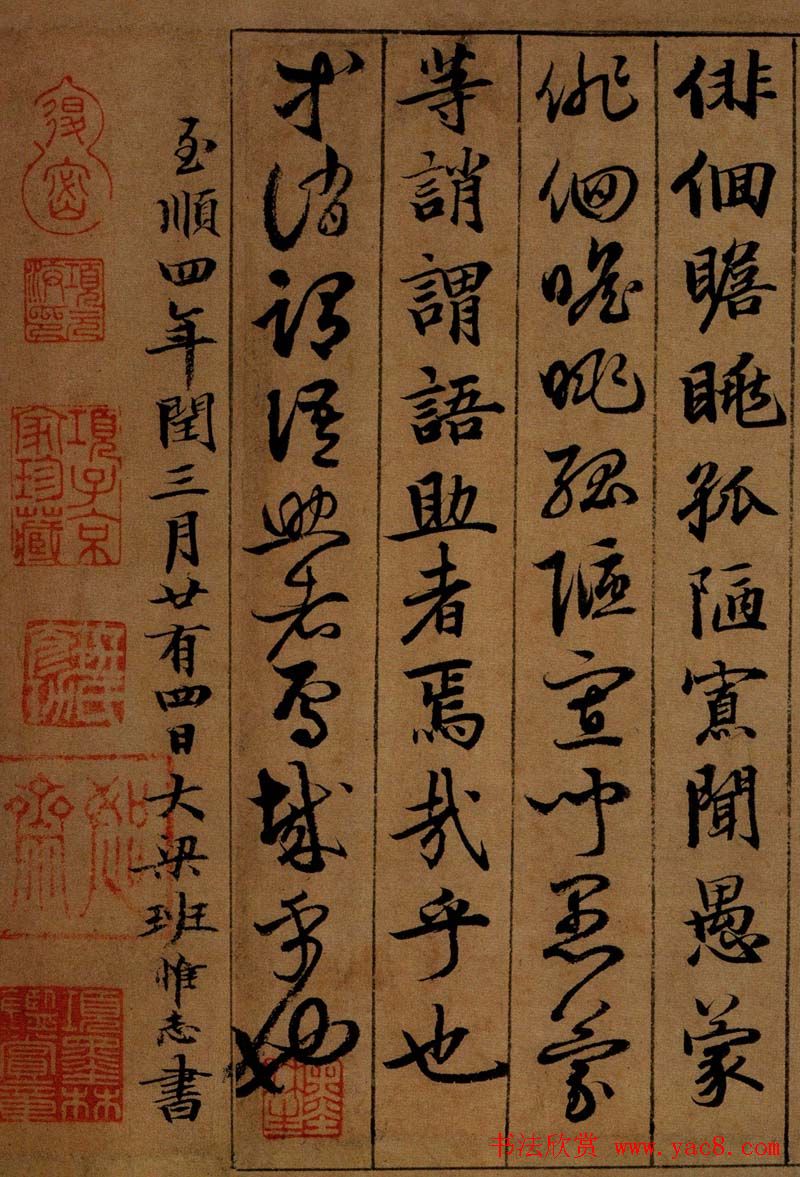 俳佪瞻眺孤陋寡聞愚蒙
俳佪瞻眺孤陋寡聞愚蒙
等誚謂語助者焉哉乎也
等誚謂語助者焉哉乎也
至順四年閏三月廿有四日大梁班惟志書
項子京
家珍藏
項墨林
鑑賞章
书法欣赏 www.yac8.com